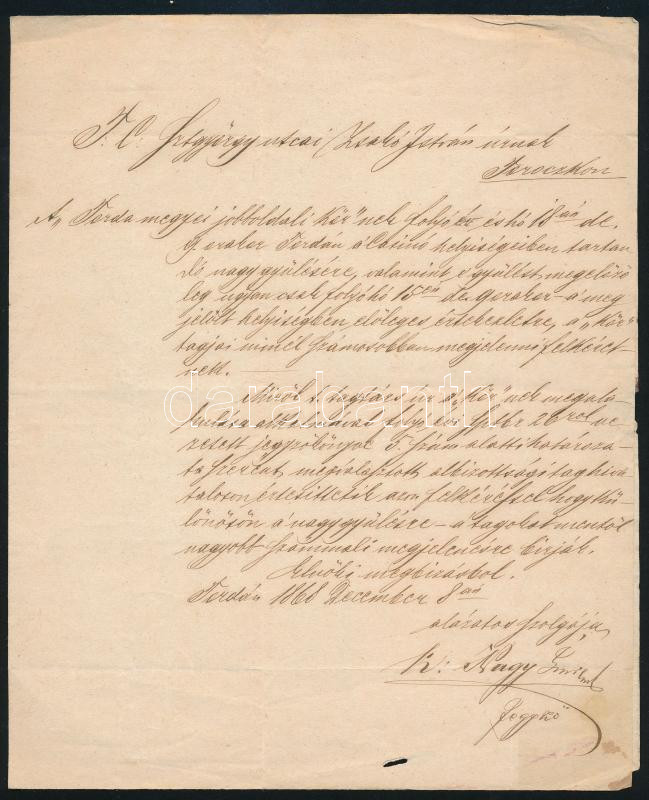 T. C. Sztgyörgy utcai Zsakó István úrnak
Toroczkon
A „Torda megyei jobboldali Kör"nek folyó év és hó 18án de.
9 órakor Tordán a Casino helyiségeiben tartan
dó nagygyülésére, valamint e gyülést megelőző
leg ugyan csak folyó hó 15én de. órakor a meg
jelölt helyiségben előleges értekezletre, a „Kör"
tagjai minél számosabban megjelenni felkéret
nek.
Miről t. tagtárs úr a „Kör"nek megala
kulása alkalmával folyó év 26ról ve
zetett jegyzőkönyve 5. szám alatti határoza
ta szerint, megválasztott albizottsági tag hiva
talosan értesittetik azon felkéréssel hogy kü
lönösön a nagygyülésre a tagokat mentől
nagyobb számmali megjelenésre birják.
Elnöki megbizásbol.
Tordán 1868 December 8án
alázatos szolgája
K: Nagy
Jegyző
darabanth